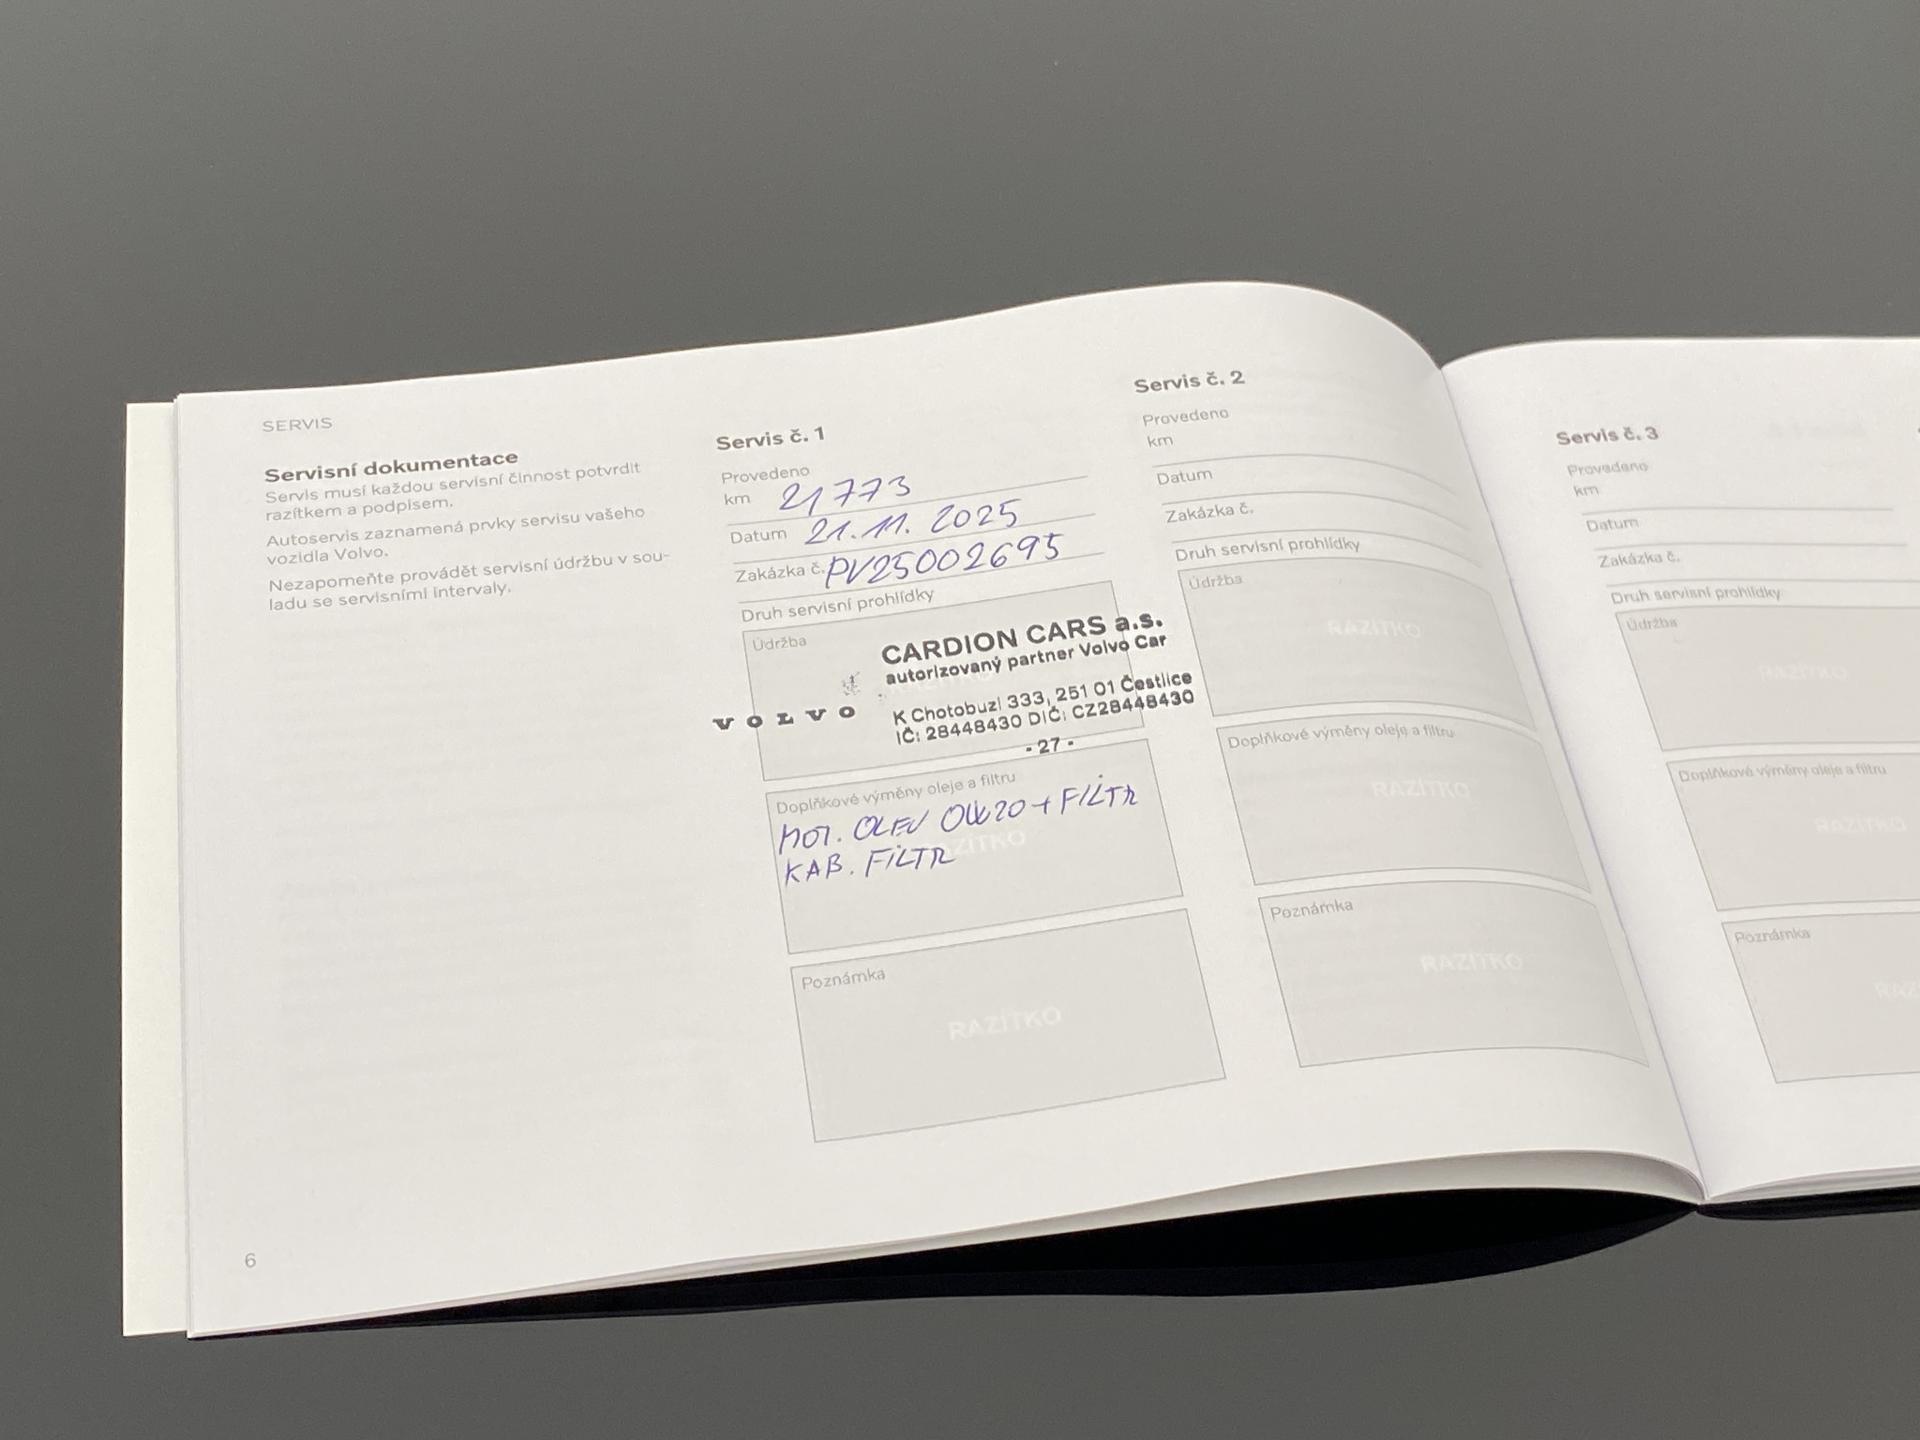 SERVIS
Servisní dokumentace
Servis musí každou servisní činnost potvrdit
razítkem a podpisem.
Autoservis zaznamená prvky servisu vašeho
vozidla Volvo.
Nezapomeňte provádět servisní údržbu v sou-
ladu se servisními intervaly.
6
Servis č. 1
Provedeno
km 21773
Datum 21.11. 2025
Zakázka č. PV25002695
Druh servisní prohlídky
Údržba
CARDION CARS a.s.
autorizovaný partner Volvo Car
VOLVO
K Chotobuzi 333, 251 01 Čestlice
IČ: 28448430 DIČ: CZ28448430
- 27 -
Doplňkové výměny oleje a filtru
MOT. OLEJ 0W20 + FILTR
KAB. FILTR
Poznámka
RAZÍTKO
Servis č. 2
Provedeno
km
Datum
Zakázka č.
Druh servisní prohlídky
Údržba
RAZÍTKO
Doplňkové výměny oleje a filtru
RAZÍTKO
Poznámka
RAZÍTKO
Servis č. 3
Provedeno
km
Datum
Zakázka č.
Druh servisní prohlídky
Údržba
RAZÍTKO
Doplňkové výměny oleje a filtru
RAZÍTKO
Poznámka